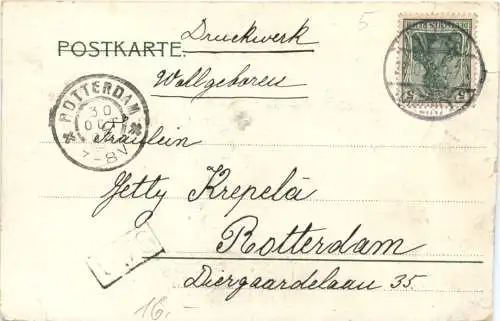 Druckwerk
5
POSTKARTE.
Wollgeboren
ROTTERDAM
30
OCT
7-8V
Fräulein
Jetty Krepela
Rotterdam
Diergaardelaan 35
16.-